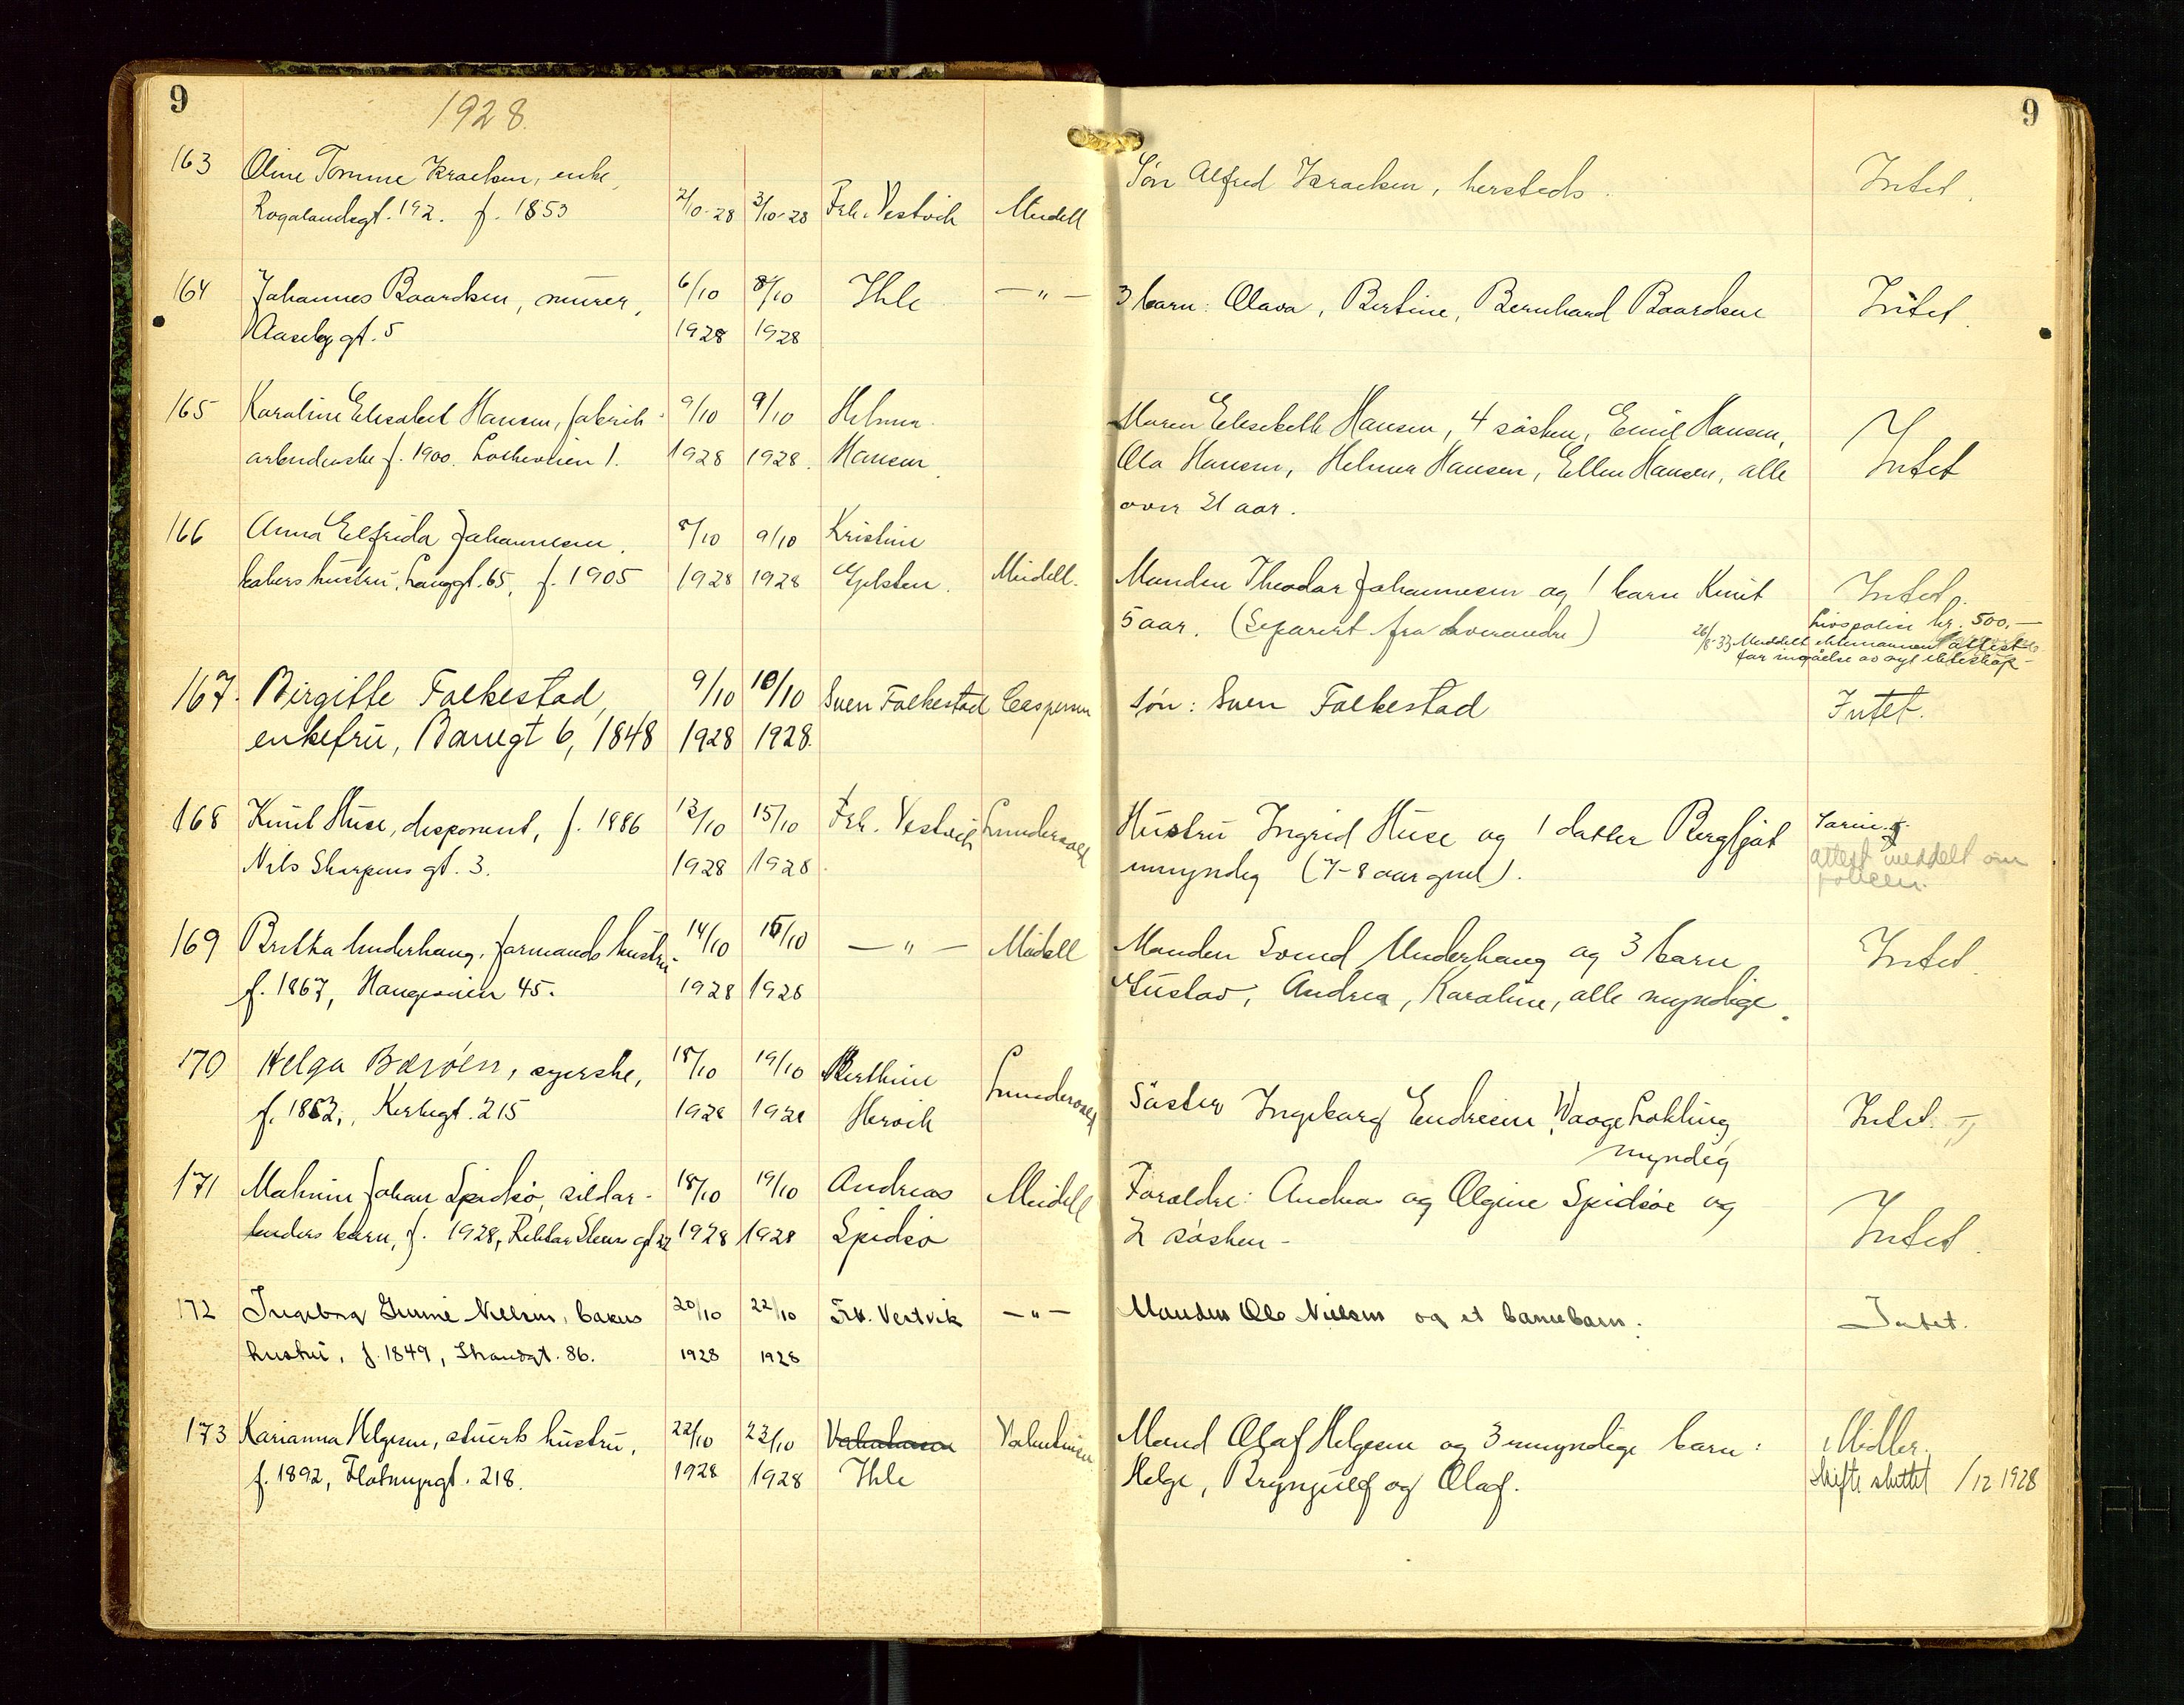 9
1928.
9
163 Oline Tomine Isracksen, enke,
Rogalandsgt. 192. f. 1853 2/10-28 3/10-28 Frk. Vestvik Meidell Søn Alfred Isracksen, hersteds. Intet.
164 Johannes Baardsen, murer, 6/10 8/10 Ihle —"— 3 barn: Olava, Bertine, Bernhard Baardsen Intet.
Aasebygt. 5 1928 1928
165 Karoline Elisabet Hansen, fabrik- 9/10 9/10 Helmer Maren Elisebeth Hansen, 4 søsken, Emil Hansen,
arbeiderske f. 1900. 1. 1928 1928. Hansen. Ola Hansen, Helmer Hansen, Ellen Hansen, alle Intet
over 21 aar.
166 Anna Elfrida Johannesen, 8/10 9/10 Kristine
hustru, Langgt. 65, f. 1905 1928 1928 Meidell. Manden Theodor Johannesen og 1 barn Knut Intet.
5 aar. (Separert fra hverandre) Livspolise kr. 500,—
26/8-33 Meddelt ektemannen attest
for ingåelse av nyt ekteskap-
167. Birgitte Falkestad, 9/10 10/10 Sven Falkestad Caspersen søn: Sven Falkestad Intet.
enkefru, Banegt 6, 1848 1928 1928.
168 Knut Huse, disponent, f. 1886 13/10 15/10 Frk. Vestvik Hustru Ingrid Huse og 1 datter Bergljot
Nils Skarpens gt. 3. 1928 1928. umyndig (7-8 aar gml). attest meddelt om
policen.
169 Britha Underhaug, formands hustru 14/10 15/10 —"— Meidell Manden Svend Underhaug og 3 barn Intet.
f. 1867, Haugeveien 45. 1928 1928 Gustav, Andrea, Karoline, alle myndige.
170 Helga Bærøen, syerske, 18/10 19/10 Berthine
f. 1882, 215 1928 1928 Hervik Søster Ingeborg Endresen, Vaage Løkling, Intet.
myndig
171 Malvin Johan Spidsø, sildar- 18/10 19/10 Andreas Meidell Forældre: Andreas og Olgine Spidsøe og
beiders barn, f. 1928, Rektor Steens gt 22 1928 1928 Spidsø 2 søsken - Intet.
172 Ingeborg Gurine Nielsen, bakers 20/10 22/10 Frk. Vestvik —"— Manden Ole Nielsen og et barnebarn. Intet.
hustru, f. 1849, Strandgt. 86. 1928 1928
173 Karianna Helgesen, stuerts hustru, 22/10 23/10 Valentinsen Valentinsen Mand Olaf Helgesen og 3 umyndige barn: Midler.
f. 1892, Flotmyrgt. 218. 1928 1928 Ihle Helge, Brynjulf og Olaf. skifte sluttet /12 1928